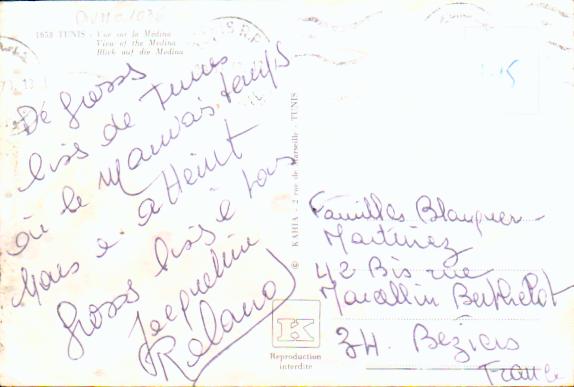 1653 TUNIS - Vue sur la Médina
View of the Medina
Blick auf die Medina
De grosse
biss de Tunis
où le mauvais temps
nous a atteint
grosse bisse à tous
Jacqueline
Roland
© KAHIA - 2 rue de Marseille - TUNIS
Familles Blanquer
Martinez
42 Bis rue
Marcellin Berthelot
34. Beziers
France
K
Reproduction
interdite